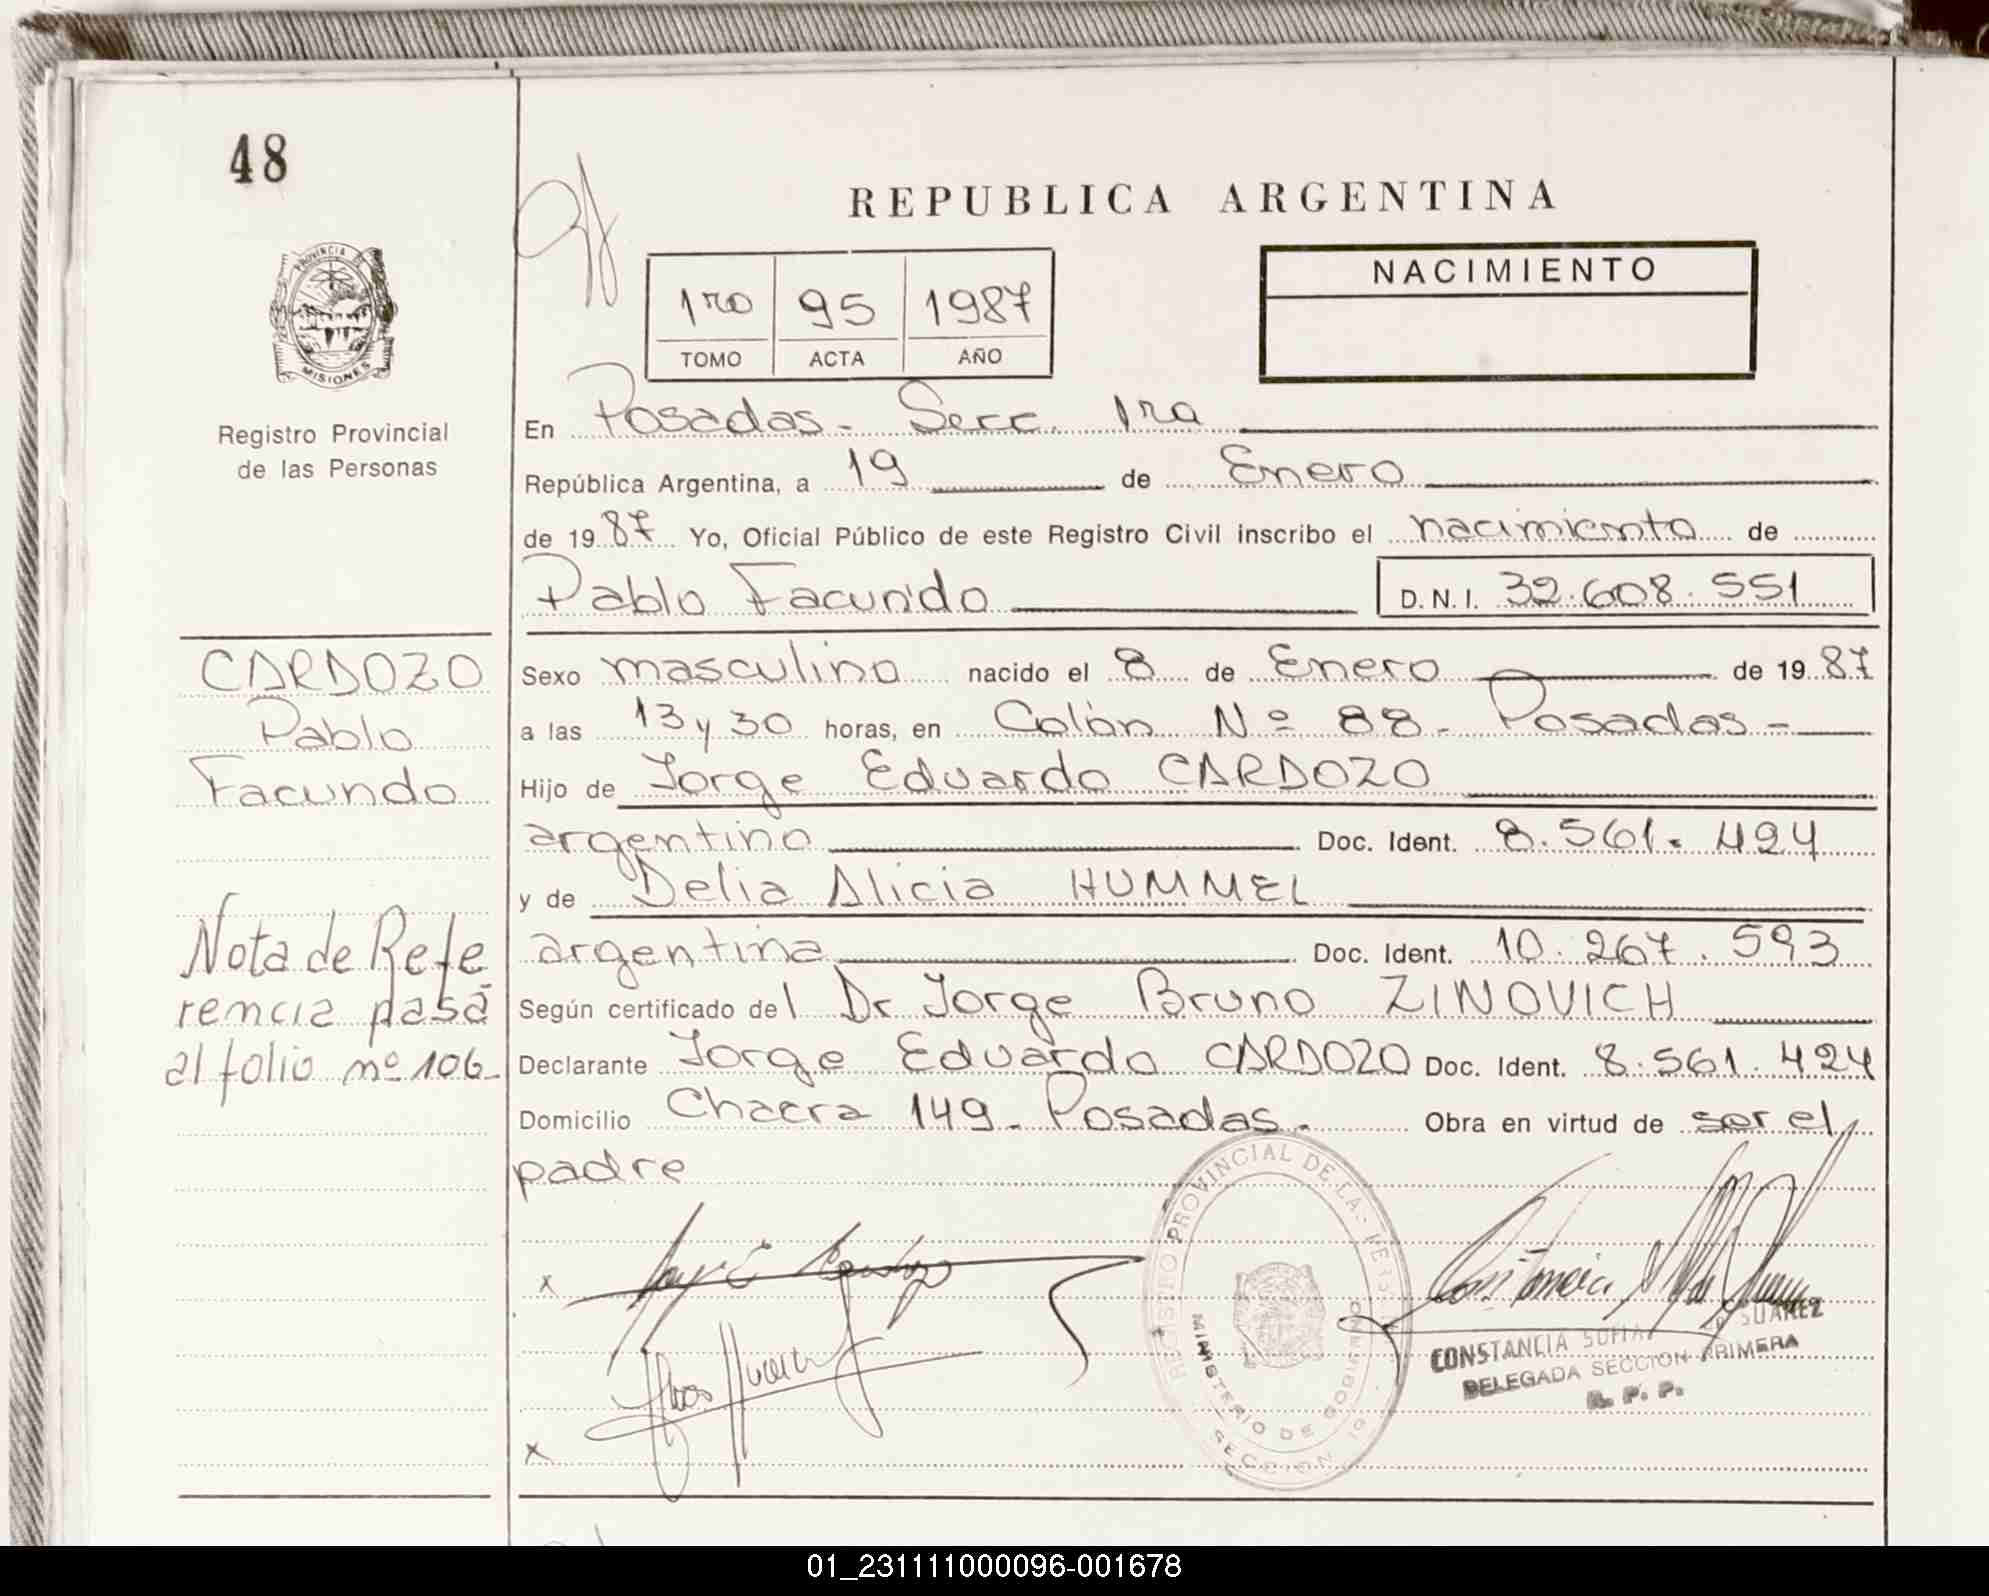 48
REPUBLICA ARGENTINA
PROVINCIA
MISIONES
Registro Provincial
de las Personas
1ro 95 1987
TOMO ACTA AÑO
NACIMIENTO
En Posadas - Secc. 1ra
República Argentina, a 19 de Enero
de 1987 Yo, Oficial Público de este Registro Civil inscribo el nacimiento de
Pablo Facundo D.N.I. 32.608.551
CARDOZO
Pablo
Facundo
Nota de Refe
rencia pasa
al folio nº 106-
Sexo masculino nacido el 8 de Enero de 1987
a las 13 y 30 horas, en Colón Nº 88 - Posadas -
Hijo de Jorge Eduardo CARDOZO
argentino Doc. Ident. 8.561.424
y de Delia Alicia HUMMEL
argentina Doc. Ident. 10.267.593
Según certificado del Dr Jorge Bruno ZINOVICH
Declarante Jorge Eduardo CARDOZO Doc. Ident. 8.561.424
Domicilio Chacra 149 - Posadas - Obra en virtud de ser el
padre
x
x
REGISTRO PROVINCIAL DE LAS PERS
MINISTERIO DE GOBIERNO
SECCION 1ª
CONSTANCIA SOFIA SUAREZ
DELEGADA SECCION PRIMERA
R. P. P.
01_231111000096-001678